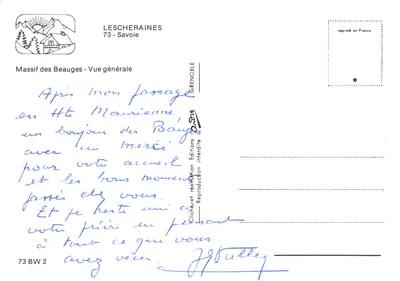 LESCHERAINES
73 - Savoie
Massif des Beauges - Vue générale
imprimé en France
Après mon passage
en Hte Maurienne,
un bonjour des Bauges
avec un merci
pour votre accueil
et les bons moments
passés chez vous.
Et je reste uni à
votre prière en pensant
à tout ce que vous
avez vécu.
GRENOBLE
Cliché et réalisation Éditions
Reproduction interdite
73 BW 2